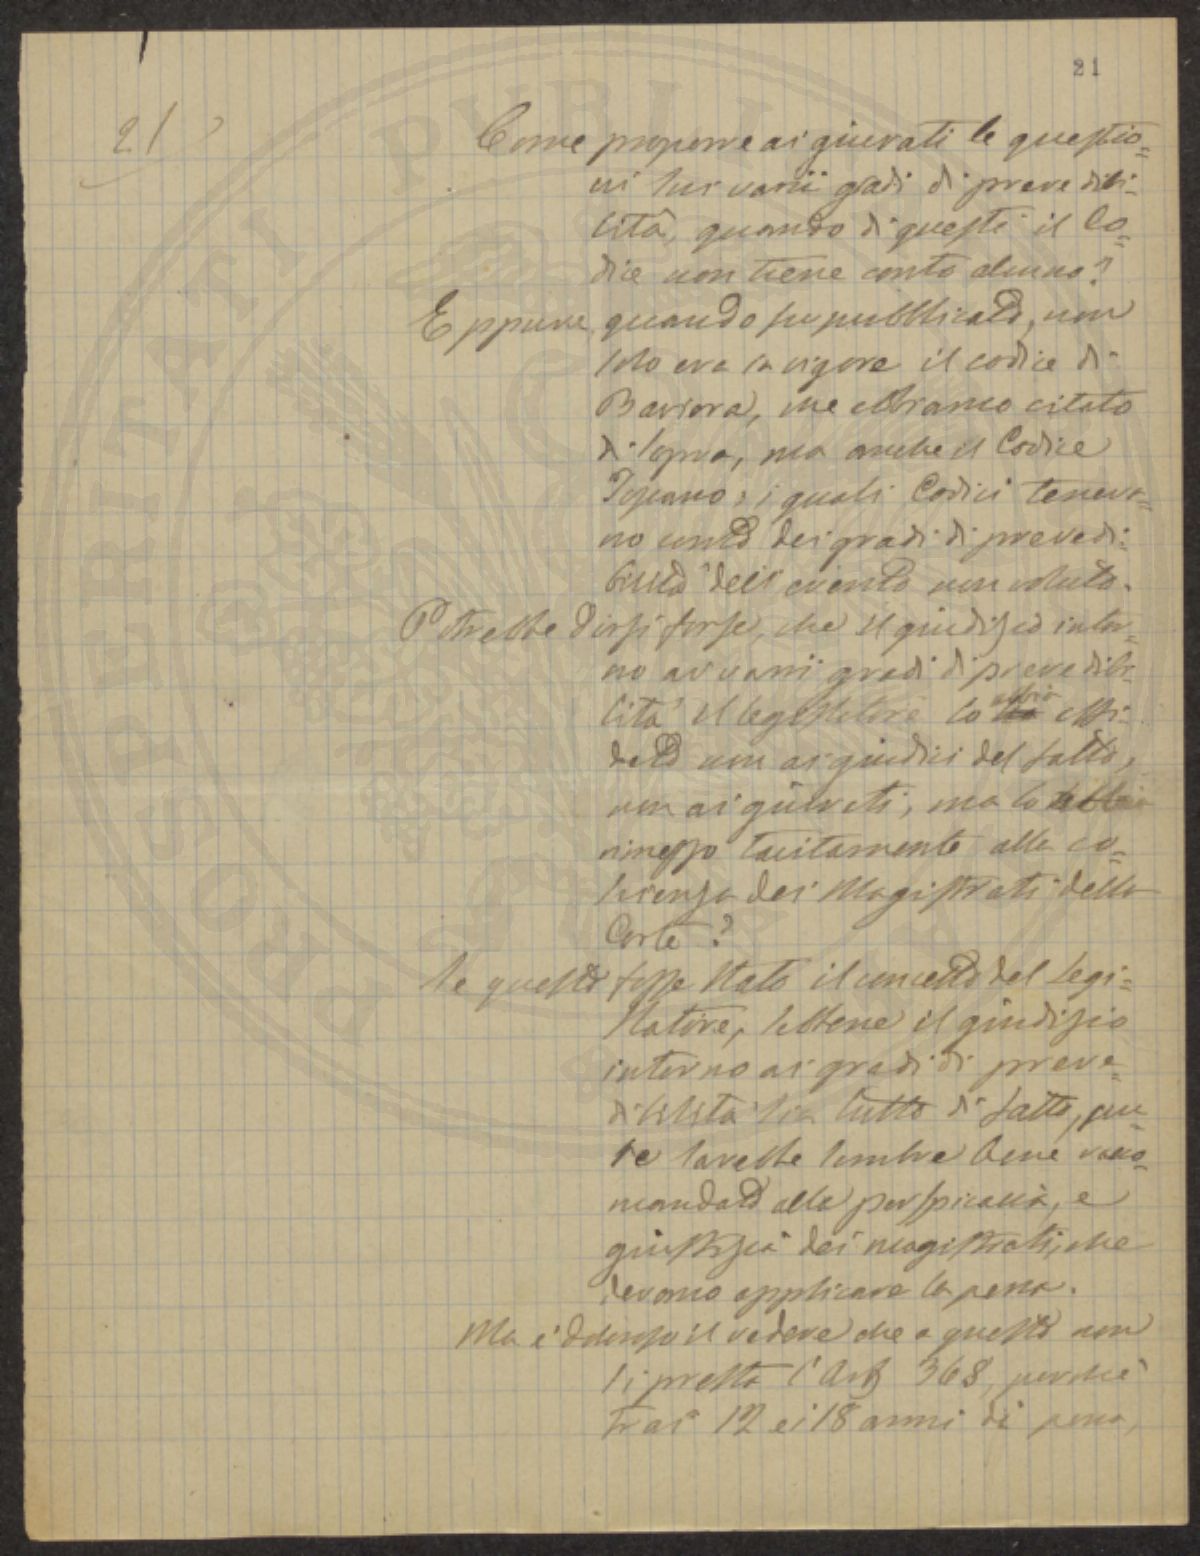 21
21
Come proporre ai giurati le questio=
ni sui varii gradi di prevedibi=
lità, quando di questi il Co=
dice non tiene conto alcuno?
Eppure, quando fu pubblicato, non
solo era in vigore il codice di
Baviera, che abbiamo citato
di sopra, ma anche il Codice
Toscano, i quali Codici teneva=
no conto dei gradi di prevedi=
bilità dell'evento non voluto.
Potrebbe dirsi forse, che il giudizio intor=
no ai varii gradi di prevedibi=
lità il legislatore lo abbia affi=
dato non ai giudici del fatto,
non ai giurati, ma lo abbia
rimesso tacitamente alla co=
scienza dei Magistrati della
Corte?
Se questo fosse stato il concetto del Legi=
slatore, sebbene il giudizio
intorno ai gradi di preve=
dibilità sia tutto di fatto, pu
re sarebbe sembre bene racco=
mandato alla perspicacia, e
giustizia dei magistrati, che
devono applicare la pena.
Ma è doloroso il vedere che a questo non
si presta l'Art 368, perchè
tra i 12 e i 18 anni di pena,
PROSPERITATI PUBLI